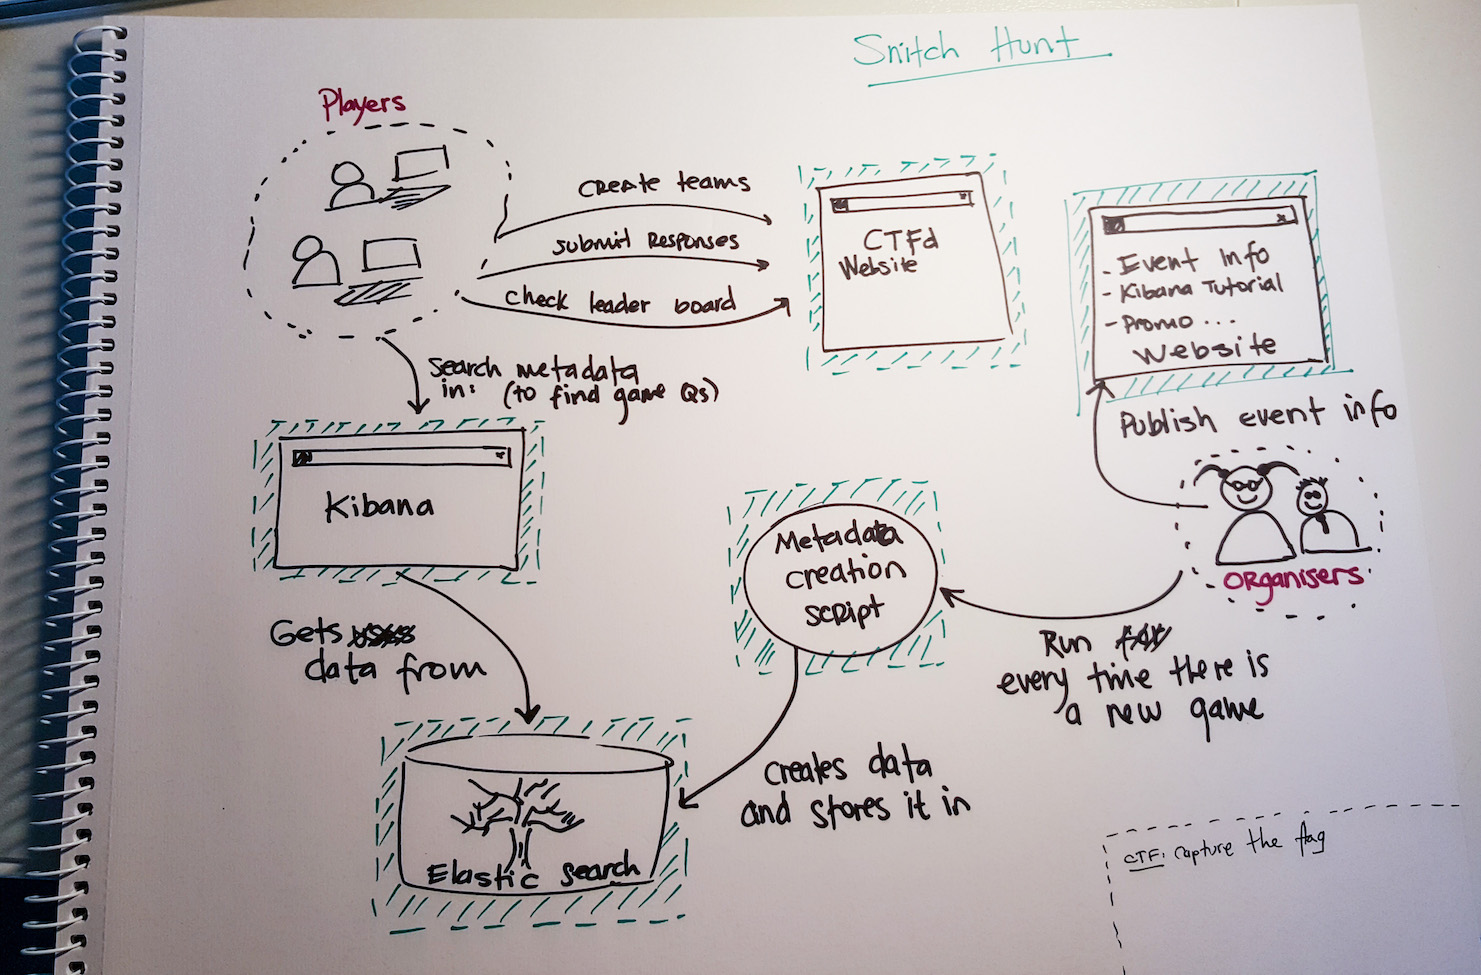 Snitch Hunt
Players
Create teams
Submit Responses
Check leader board
CTFd
Website
- Event Info
- Kibana Tutorial
- Promo ...
Website
Search metadata
in: (to find game Qs)
Publish event info
Kibana
Metadata
Creation
Script
Organisers
Gets
data from
Run
every time there is
a new game
Creates data
and stores it in
Elastic Search
CTF: Capture the flag